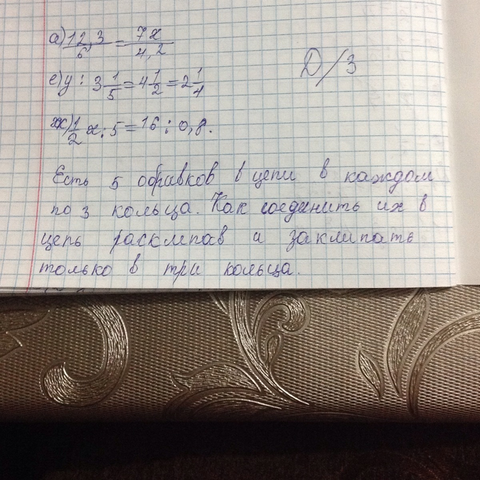 а) 12,3/6 = 7x/4,2
Д/З
е) y : 3 1/5 = 4 1/2 = 2 1/4
ж) 1/2 x : 5 = 16 : 0,8.
Есть 5 обривков в цепи в каждом
по 3 кольца. Как соединить их в
цепь расклипав и заклипать
только в три кольца.